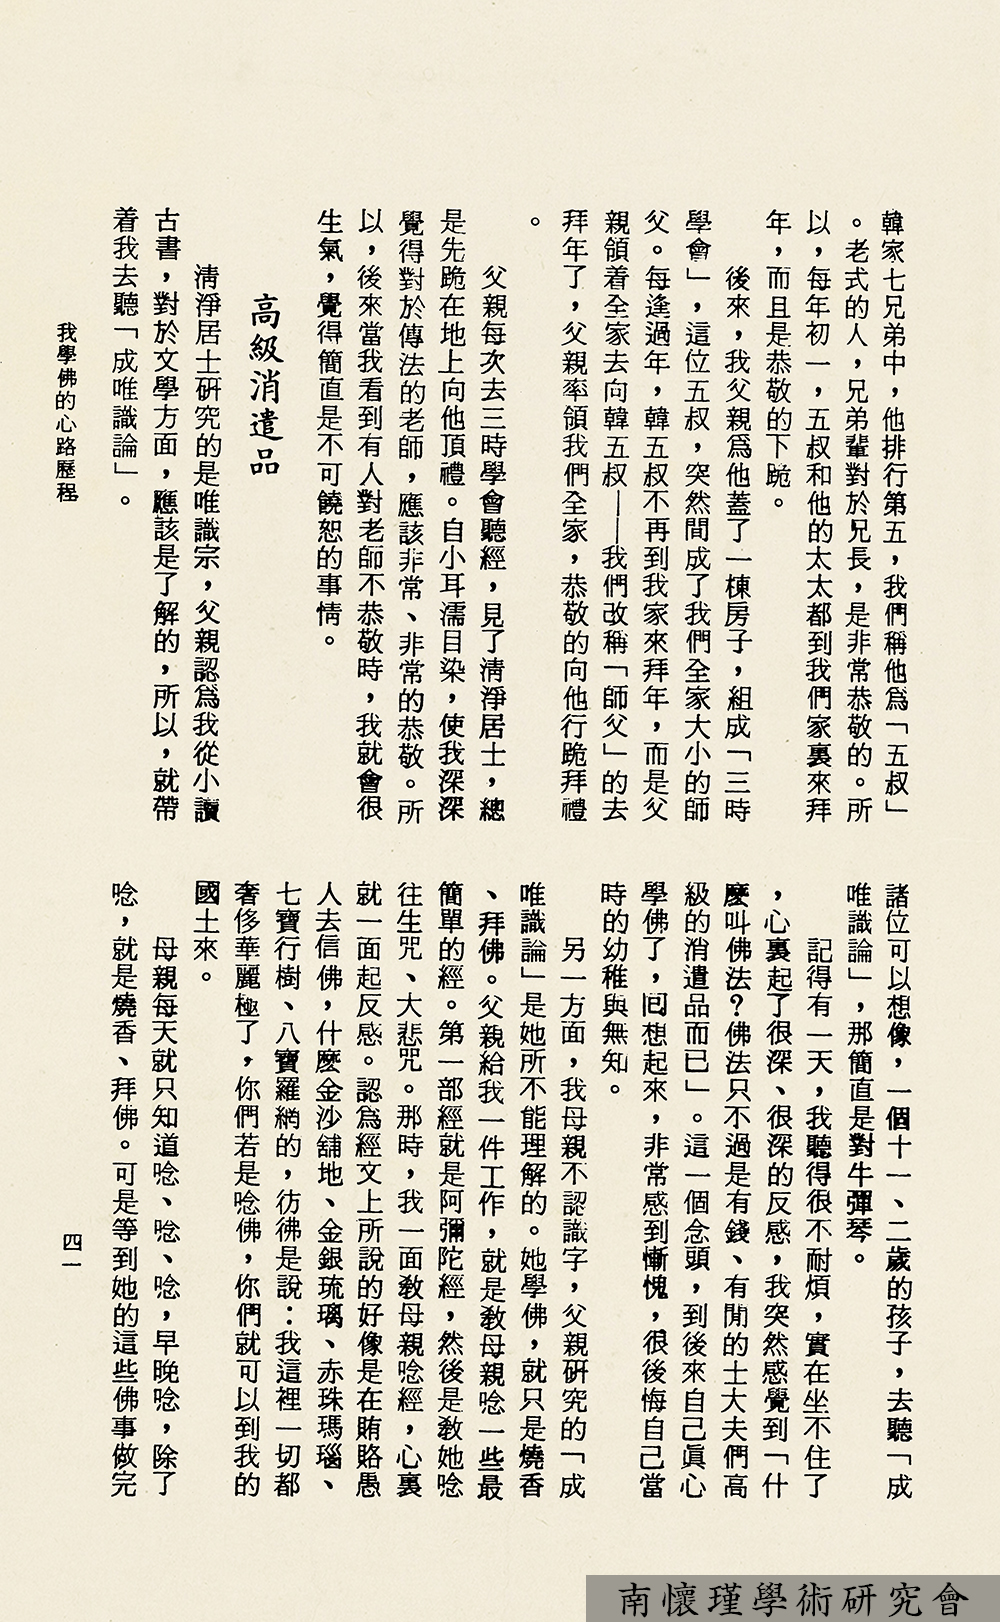 韓家七兄弟中，他排行第五，我們稱他爲「五叔」
。老式的人，兄弟輩對於兄長，是非常恭敬的。所
以，每年初一，五叔和他的太太都到我們家裏來拜
年，而且是恭敬的下跪。
後來，我父親爲他蓋了一棟房子，組成「三時
學會」，這位五叔，突然間成了我們全家大小的師
父。每逢過年，韓五叔不再到我家來拜年，而是父
親領着全家去向韓五叔——我們改稱「師父」的去
拜年了，父親率領我們全家，恭敬的向他行跪拜禮
。
父親每次去三時學會聽經，見了清淨居士，總
是先跪在地上向他頂禮。自小耳濡目染，使我深深
覺得對於傳法的老師，應該非常、非常的恭敬。所
以，後來當我看到有人對老師不恭敬時，我就會很
生氣，覺得簡直是不可饒恕的事情。
高級消遣品
清淨居士研究的是唯識宗，父親認爲我從小讀
古書，對於文學方面，應該是了解的，所以，就帶
着我去聽「成唯識論」。
諸位可以想像，一個十一、二歲的孩子，去聽「成
唯識論」，那簡直是對牛彈琴。
記得有一天，我聽得很不耐煩，實在坐不住了
，心裏起了很深、很深的反感，我突然感覺到「什
麼叫佛法？佛法只不過是有錢、有閒的士大夫們高
級的消遣品而已」。這一個念頭，到後來自己眞心
學佛了，回想起來，非常感到慚愧，很後悔自己當
時的幼稚與無知。
另一方面，我母親不認識字，父親研究的「成
唯識論」是她所不能理解的。她學佛，就只是燒香
、拜佛。父親給我一件工作，就是教母親唸一些最
簡單的經。第一部經就是阿彌陀經，然後是教她唸
往生咒、大悲咒。那時，我一面教母親唸經，心裏
就一面起反感。認爲經文上所說的好像是在賄賂愚
人去信佛，什麼金沙舖地、金銀琉璃、赤珠瑪瑙、
七寶行樹、八寶羅網的，彷彿是說：我這裡一切都
奢侈華麗極了，你們若是唸佛，你們就可以到我的
國土來。
母親每天就只知道唸、唸、唸，早晚唸，除了
唸，就是燒香、拜佛。可是等到她的這些佛事做完
我學佛的心路歷程
四一
南懷瑾學術研究會